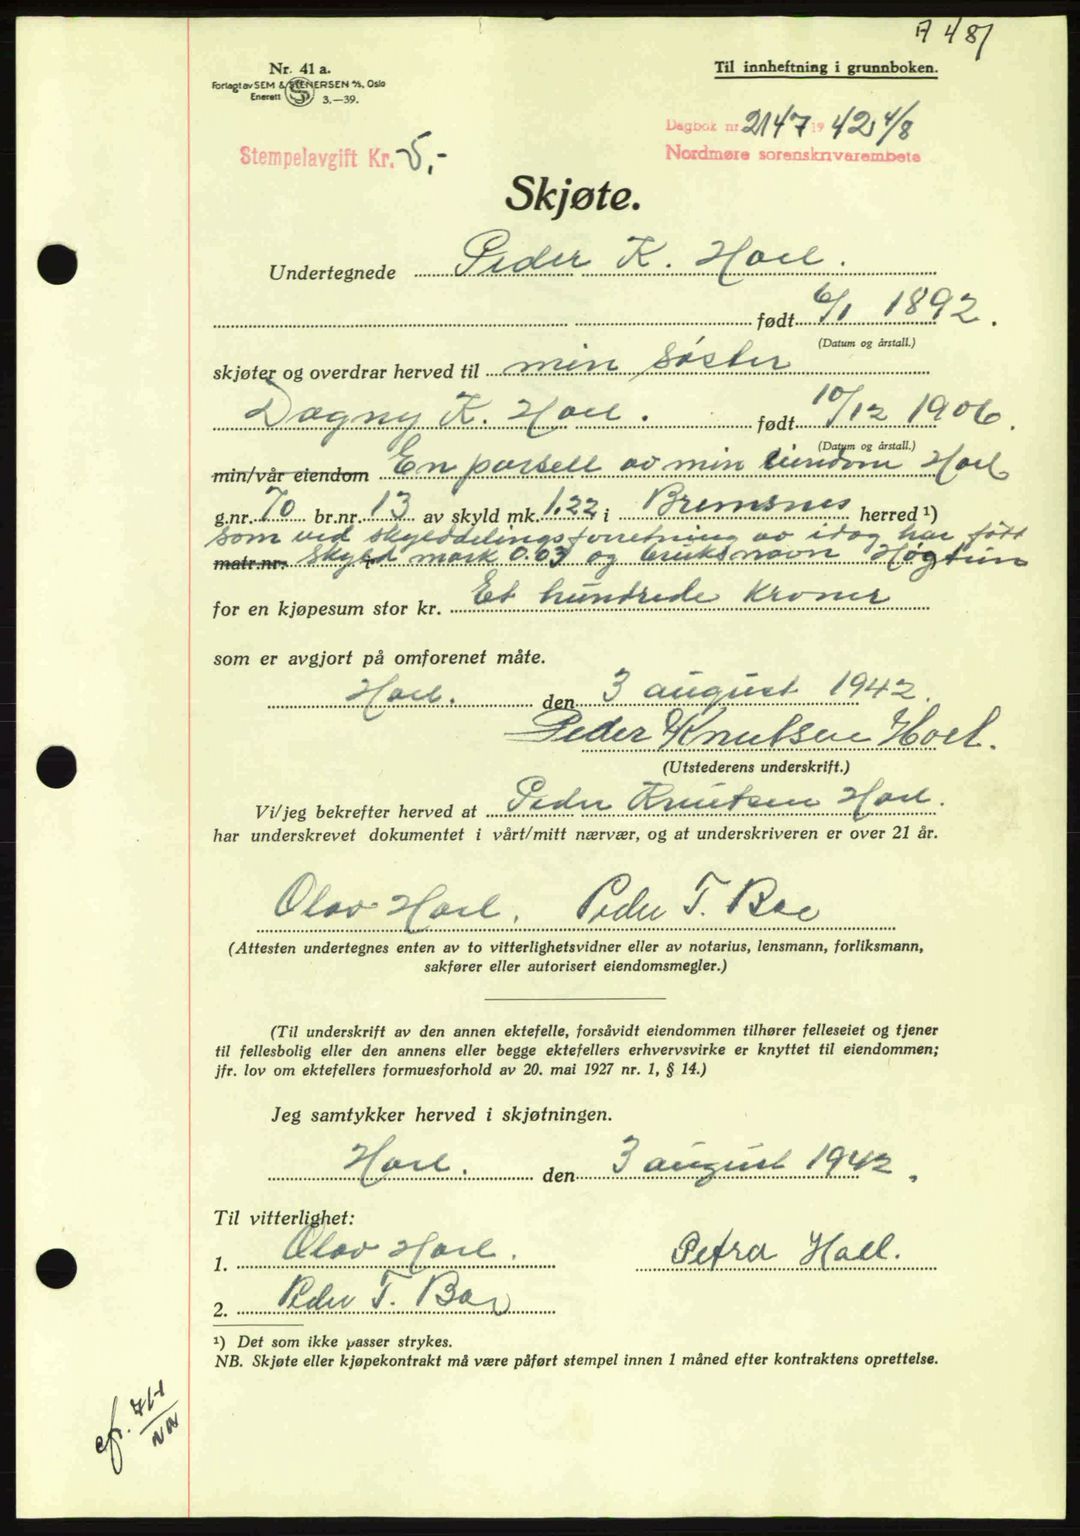 A 481
Nr. 41 a.
Til innheftning i grunnboken.
Forlagt av SEM & STENERSEN A/S, Oslo
Enerett 3.—39.
Dagbok nr 2147 1942 4/8
Nordmøre sorenskriverembete
Stempelavgift Kr. 5,-
Skjøte.
Undertegnede Peder K. Hoel.
født 6/1 1892.
(Datum og årstall.)
skjøter og overdrar herved til min søster
Dagny K. Hoel. født 10/12 1906.
(Datum og årstall.)
min/vår eiendom En parsell av min eiendom Hoel
g.nr. 70 br.nr. 13 av skyld mk. 1.22 i Bremsnes herred ¹)
som ved skylddelingsforretning av idag har fått
matr.nr. skyld mark 0.03 og bruksnavn Høgtun
for en kjøpesum stor kr. Et hundrede kroner
som er avgjort på omforenet måte.
Hoel. den 3 august 1942.
Peder Knutsen Hoel.
(Utstederens underskrift.)
Vi/jeg bekrefter herved at Peder Knutsen Hoel.
har underskrevet dokumentet i vårt/mitt nærvær, og at underskriveren er over 21 år.
Olav Hoel. Peder T. Boe
(Attesten undertegnes enten av to vitterlighetsvidner eller av notarius, lensmann, forliksmann,
sakfører eller autorisert eiendomsmegler.)
(Til underskrift av den annen ektefelle, forsåvidt eiendommen tilhører felleseiet og tjener
til fellesbolig eller den annens eller begge ektefellers erhvervsvirke er knyttet til eiendommen;
jfr. lov om ektefellers formuesforhold av 20. mai 1927 nr. 1, § 14.)
Jeg samtykker herved i skjøtningen.
Hoel. den 3 august 1942.
Til vitterlighet:
1. Olav Hoel. Petra Hoel.
2. Peder T. Boe
¹) Det som ikke passer strykes.
NB. Skjøte eller kjøpekontrakt må være påført stempel innen 1 måned efter kontraktens oprettelse.